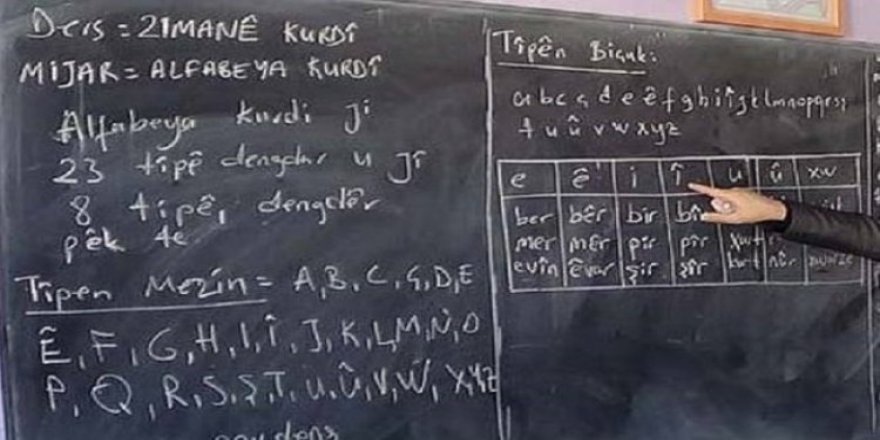 Ders = ZIMANÊ KURDÎ
MIJAR = ALFABEYA KURDÎ
Alfabeya Kurdi ji
23 tîpê dengdar u Jî
8 tipê, dengdêr
pêk te
Tîpen Mezin = A, B, C, Ç, D, E
Ê, F, G, H, I, Î, J, K, L, M, N, O
P, Q, R, S, Ş, T, U, Û, V, W, X, Y, Z
Tîpên Biçuk:
a b c ç d e ê f g h i î j k l m n o p q r s ş
t u û v w x y z
e ê i î u û xw
ber bêr bir
mer mêr pir pîr
evîn êvar şir şîr kurt nûr